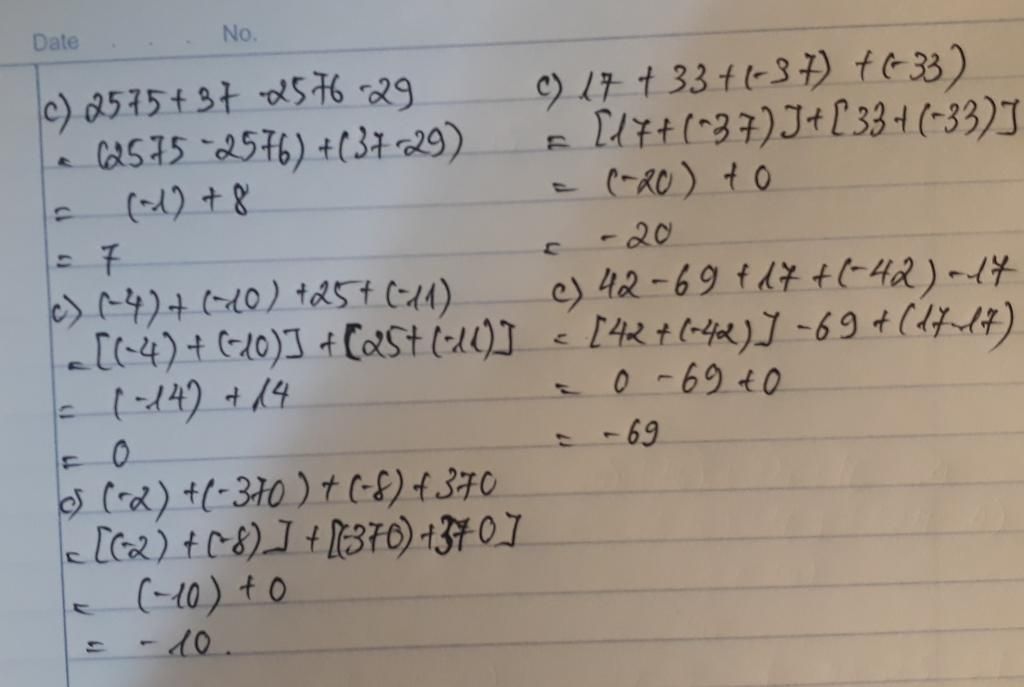 Date . . . No.
c) 2575 + 37 - 2576 - 29
= (2575 - 2576) + (37 - 29)
= (-1) + 8
= 7
c) (-4) + (-10) + 25 + (-11)
= [(-4) + (-10)] + [25 + (-11)]
= (-14) + 14
= 0
c) (-2) + (-370) + (-8) + 370
= [(-2) + (-8)] + [(-370) + 370]
= (-10) + 0
= -10.
c) 17 + 33 + (-37) + (-33)
= [17 + (-37)] + [33 + (-33)]
= (-20) + 0
= -20
c) 42 - 69 + 17 + (-42) - 17
= [42 + (-42)] - 69 + (17 - 17)
= 0 - 69 + 0
= -69